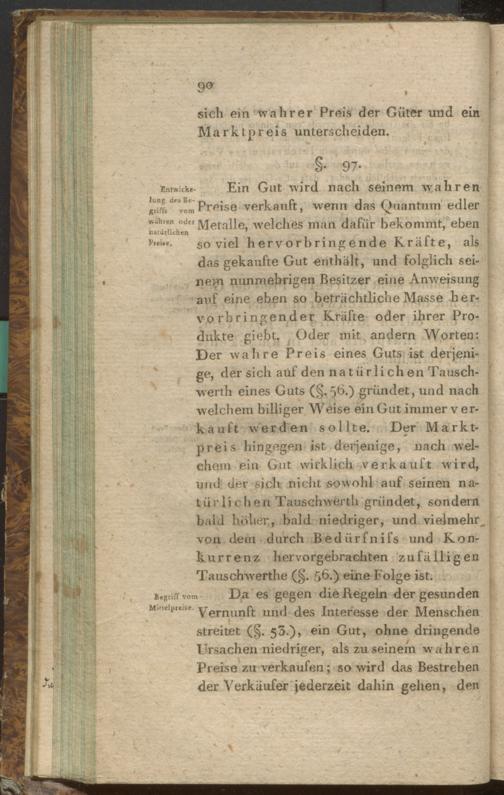 90
sich ein wahrer Preis der Güter und ein
Marktpreis unterscheiden.
§. 97.
Entwicke-
lung des Be-
griffs vom
wahren oder
natürlichen
Preise.
Ein Gut wird nach seinem wahren
Preise verkauft, wenn das Quantum edler
Metalle, welches man dafür bekommt, eben
so viel hervorbringende Kräfte, als
das gekaufte Gut enthält, und folglich sei-
nem nunmehrigen Besitzer eine Anweisung
auf eine eben so beträchtliche Masse her-
vorbringender Kräfte oder ihrer Pro-
dukte giebt. Oder mit andern Worten:
Der wahre Preis eines Guts ist derjeni-
ge, der sich auf den natürlichen Tausch-
werth eines Guts (§. 56.) gründet, und nach
welchem billiger Weise ein Gut immer ver-
kauft werden sollte. Der Markt-
preis hingegen ist derjenige, nach wel-
chem ein Gut wirklich verkauft wird,
und der sich nicht sowohl auf seinen na-
türlichen Tauschwerth gründet, sondern
bald höher, bald niedriger, und vielmehr
von dem durch Bedürfniſs und Kon-
kurrenz hervorgebrachten zufälligen
Tauschwerthe (§. 56.) eine Folge ist.
Begriff vom
Mittelpreise.
Da es gegen die Regeln der gesunden
Vernunft und des Interesse der Menschen
streitet (§. 53.), ein Gut, ohne dringende
Ursachen niedriger, als zu seinem wahren
Preise zu verkaufen; so wird das Bestreben
der Verkäufer jederzeit dahin gehen, den